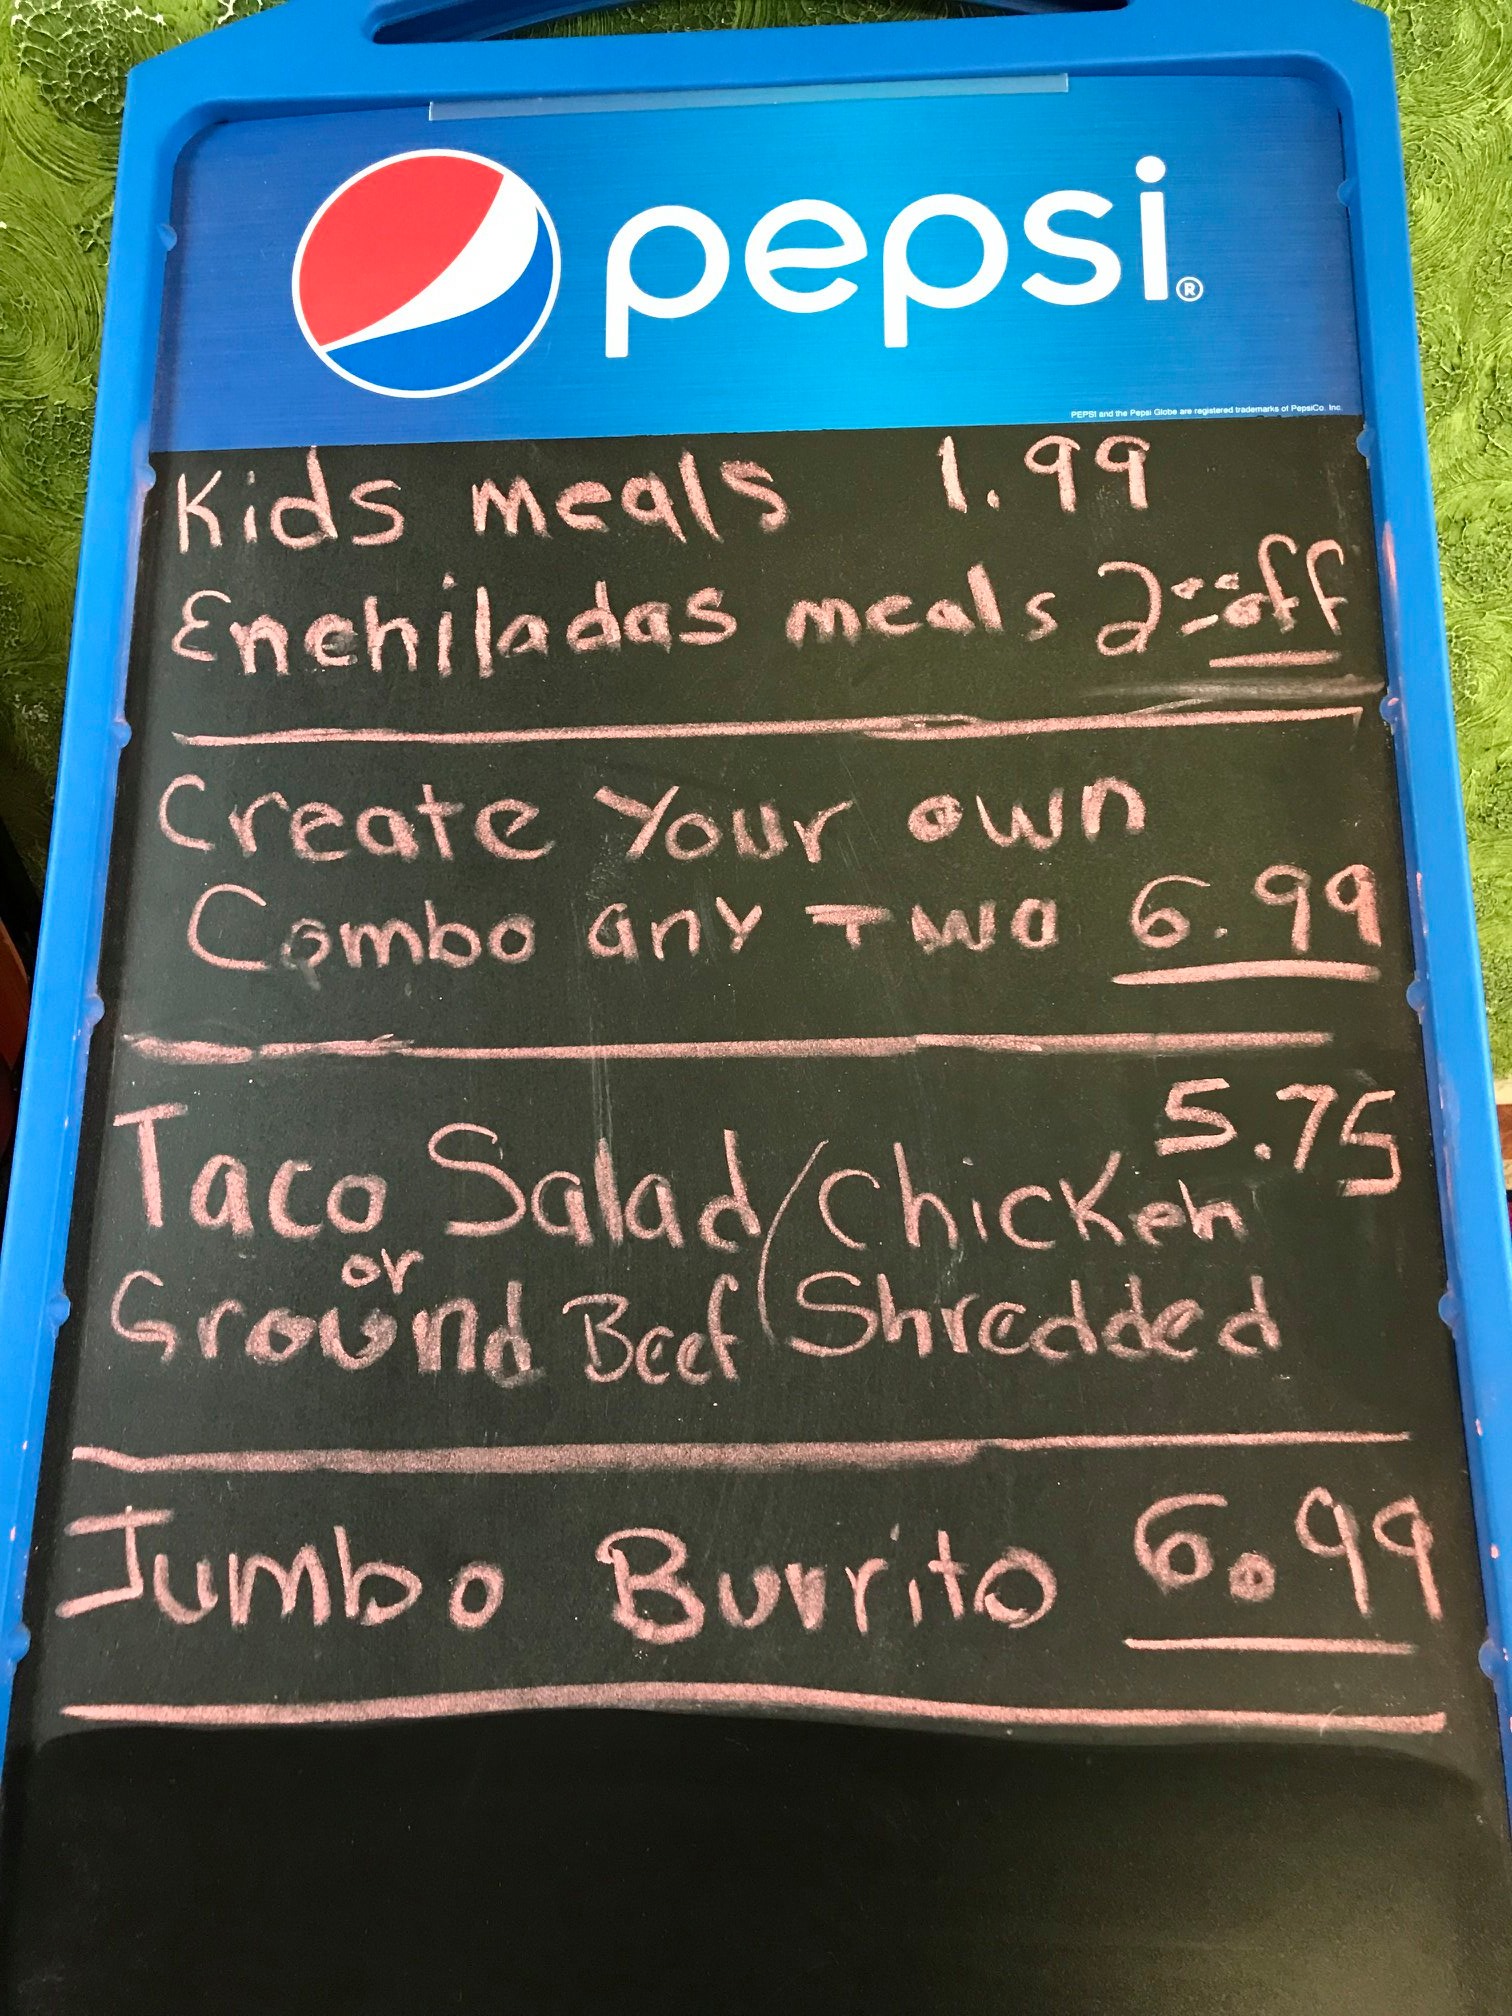 pepsi®
PEPSI and the Pepsi Globe are registered trademarks of PepsiCo. Inc.
Kids meals 1.99
Enchiladas meals 2.00 off
Create Your own
Combo any Two 6.99
5.75
Taco Salad/Chicken
or
Ground Beef/Shredded
Jumbo Burrito 6.99